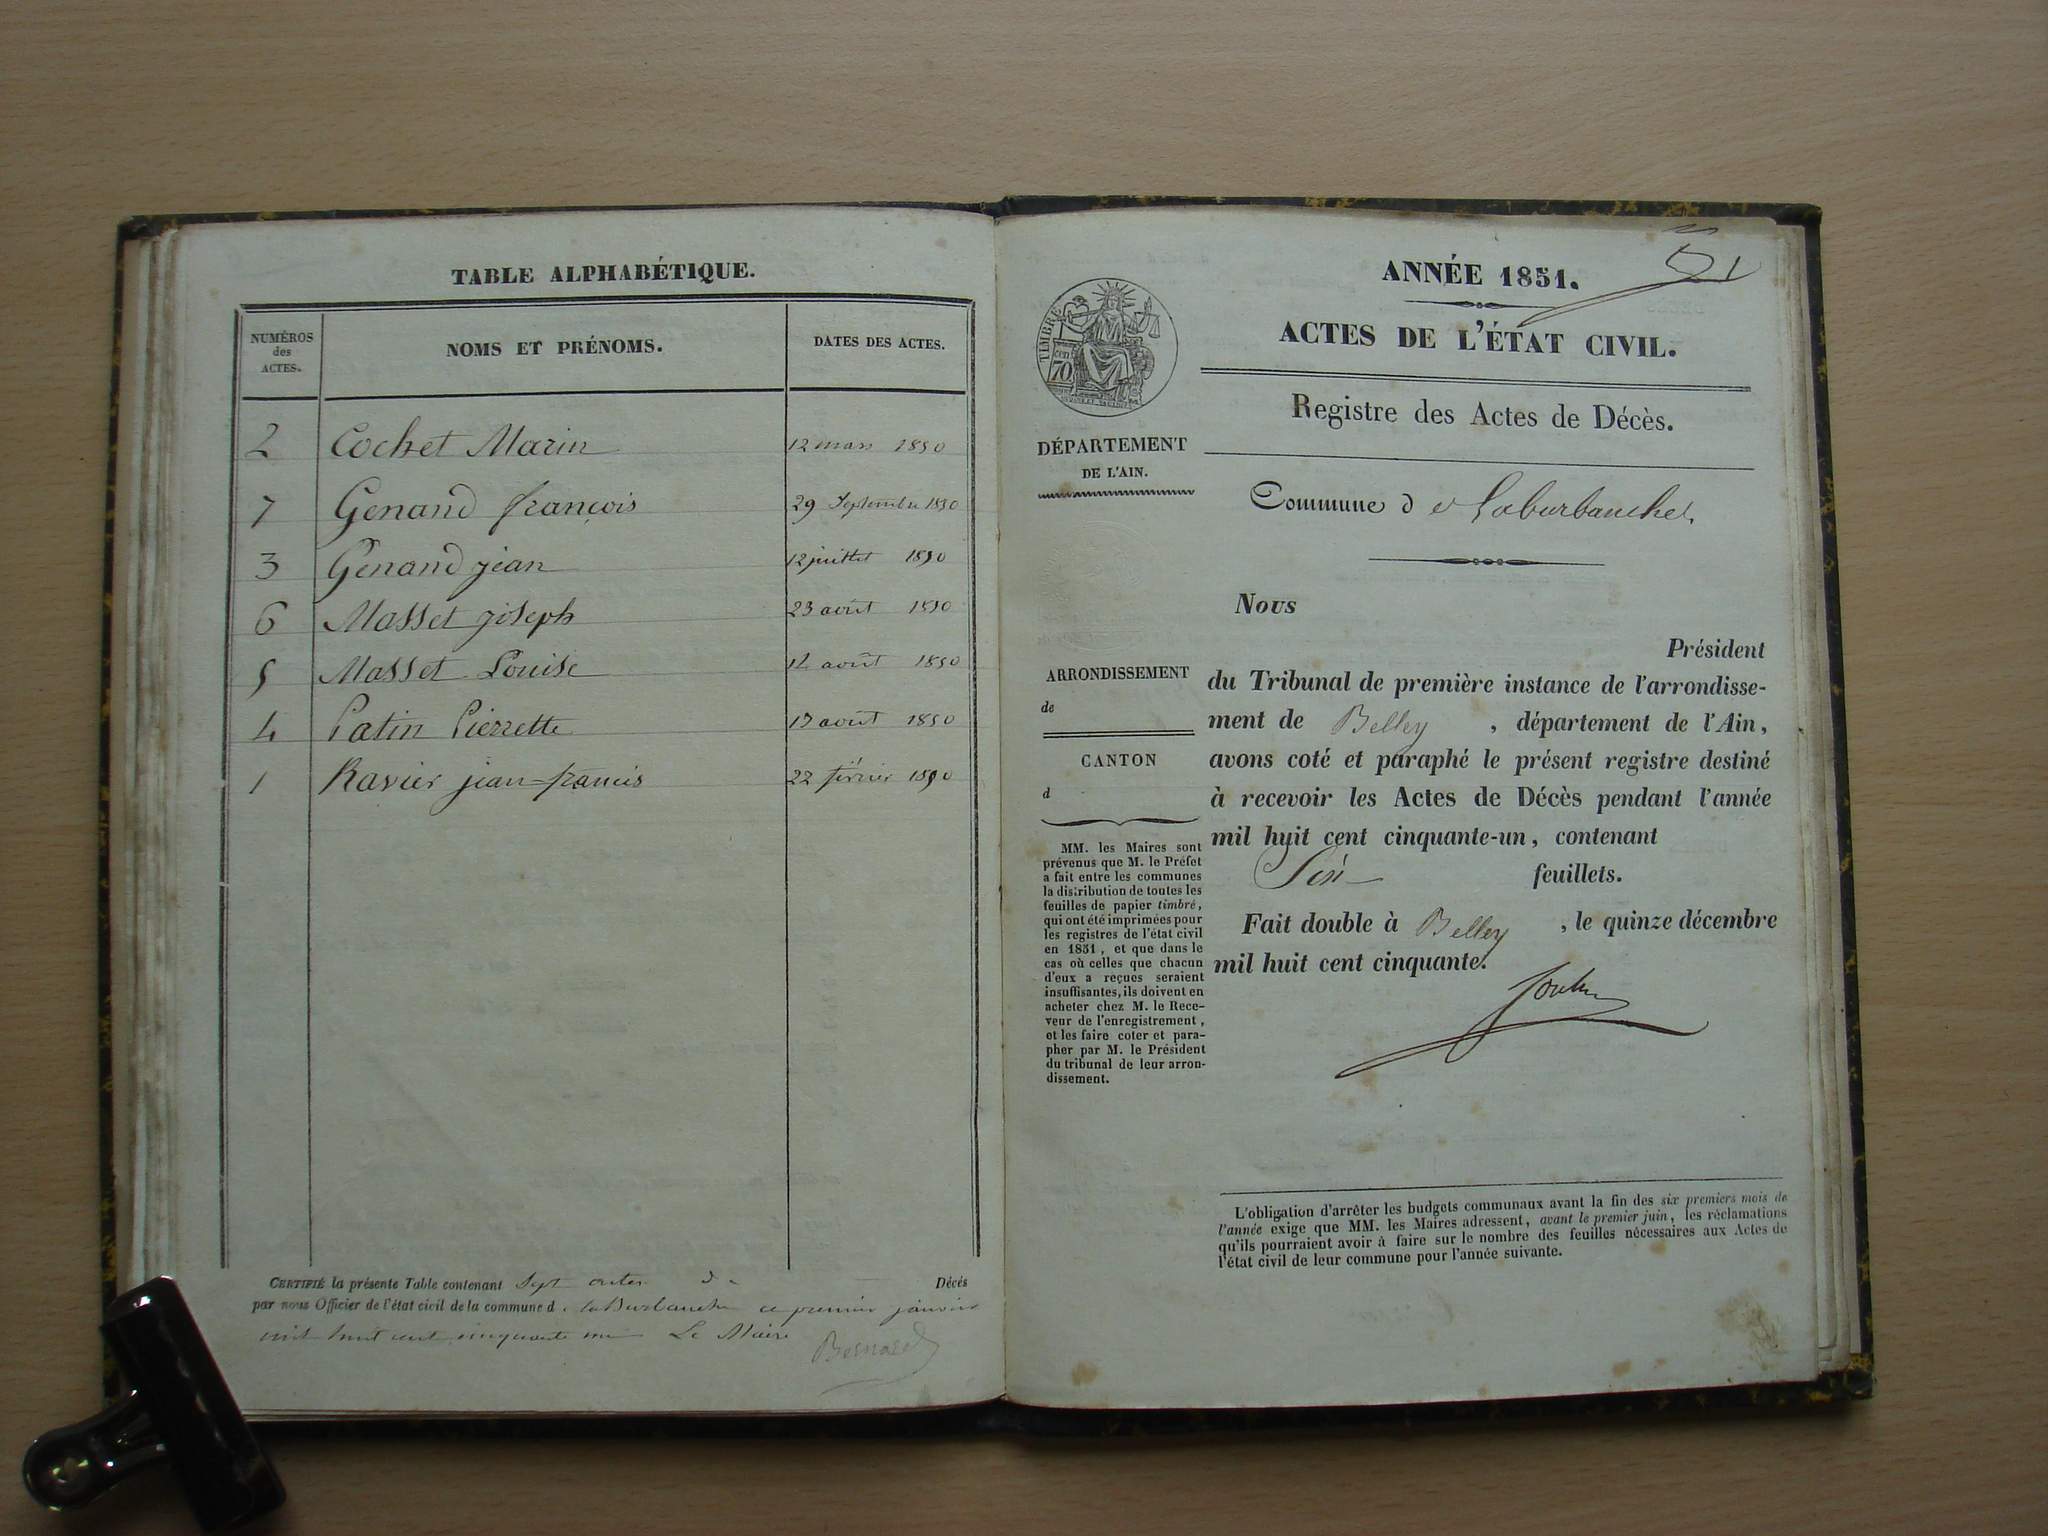 TABLE ALPHABÉTIQUE.
NUMÉROS
des
ACTES.
NOMS ET PRÉNOMS.
DATES DES ACTES.
2 Cochet Marin 12 mars 1850
7 Genand françois 29 Septembre 1850
3 Genand jean 12 juillet 1850
6 Masset joseph 23 août 1850
5 Masset Louise août 1850
4 Patin Pierrette août 1850
1 Ravier jean-francis 22 février 1850
CERTIFIÉ la présente Table contenant Sept Décés
par nous Officier de l'état civil de la commune d e laBurbanche ce premier janvier
mil huit cent cinquante un Le Maire
Bernard
51
ANNÉE 1851.
ACTES DE L'ÉTAT CIVIL.
Registre des Actes de Décès.
Commune d e Laburbanche
TIMBRE
70
DÉPARTEMENT
DE L'AIN.
ARRONDISSEMENT
de
CANTON
d
MM. les Maires sont
prévenus que M. le Préfet
a fait entre les communes
la distribution de toutes les
feuilles de papier timbré,
qui ont été imprimées pour
les registres de l'état civil
en 1851, et que dans le
cas où celles que chacun
d'eux a reçues seraient
insuffisantes, ils doivent en
acheter chez M. le Rece-
veur de l'enregistrement,
et les faire coter et para-
pher par M. le Président
du tribunal de leur arron-
dissement.
Nous
Président
du Tribunal de première instance de l'arrondisse-
ment de Belley, département de l'Ain,
avons coté et paraphé le présent registre destiné
à recevoir les Actes de Décès pendant l'année
mil huit cent cinquante-un, contenant
feuillets.
Fait double à Belley, le quinze décembre
mil huit cent cinquante.
L'obligation d'arrêter les budgets communaux avant la fin des six premiers mois de
l'année exige que MM. les Maires adressent, avant le premier juin, les réclamations
qu'ils pourraient avoir à faire sur le nombre des feuilles nécessaires aux Actes de
l'état civil de leur commune pour l'année suivante.